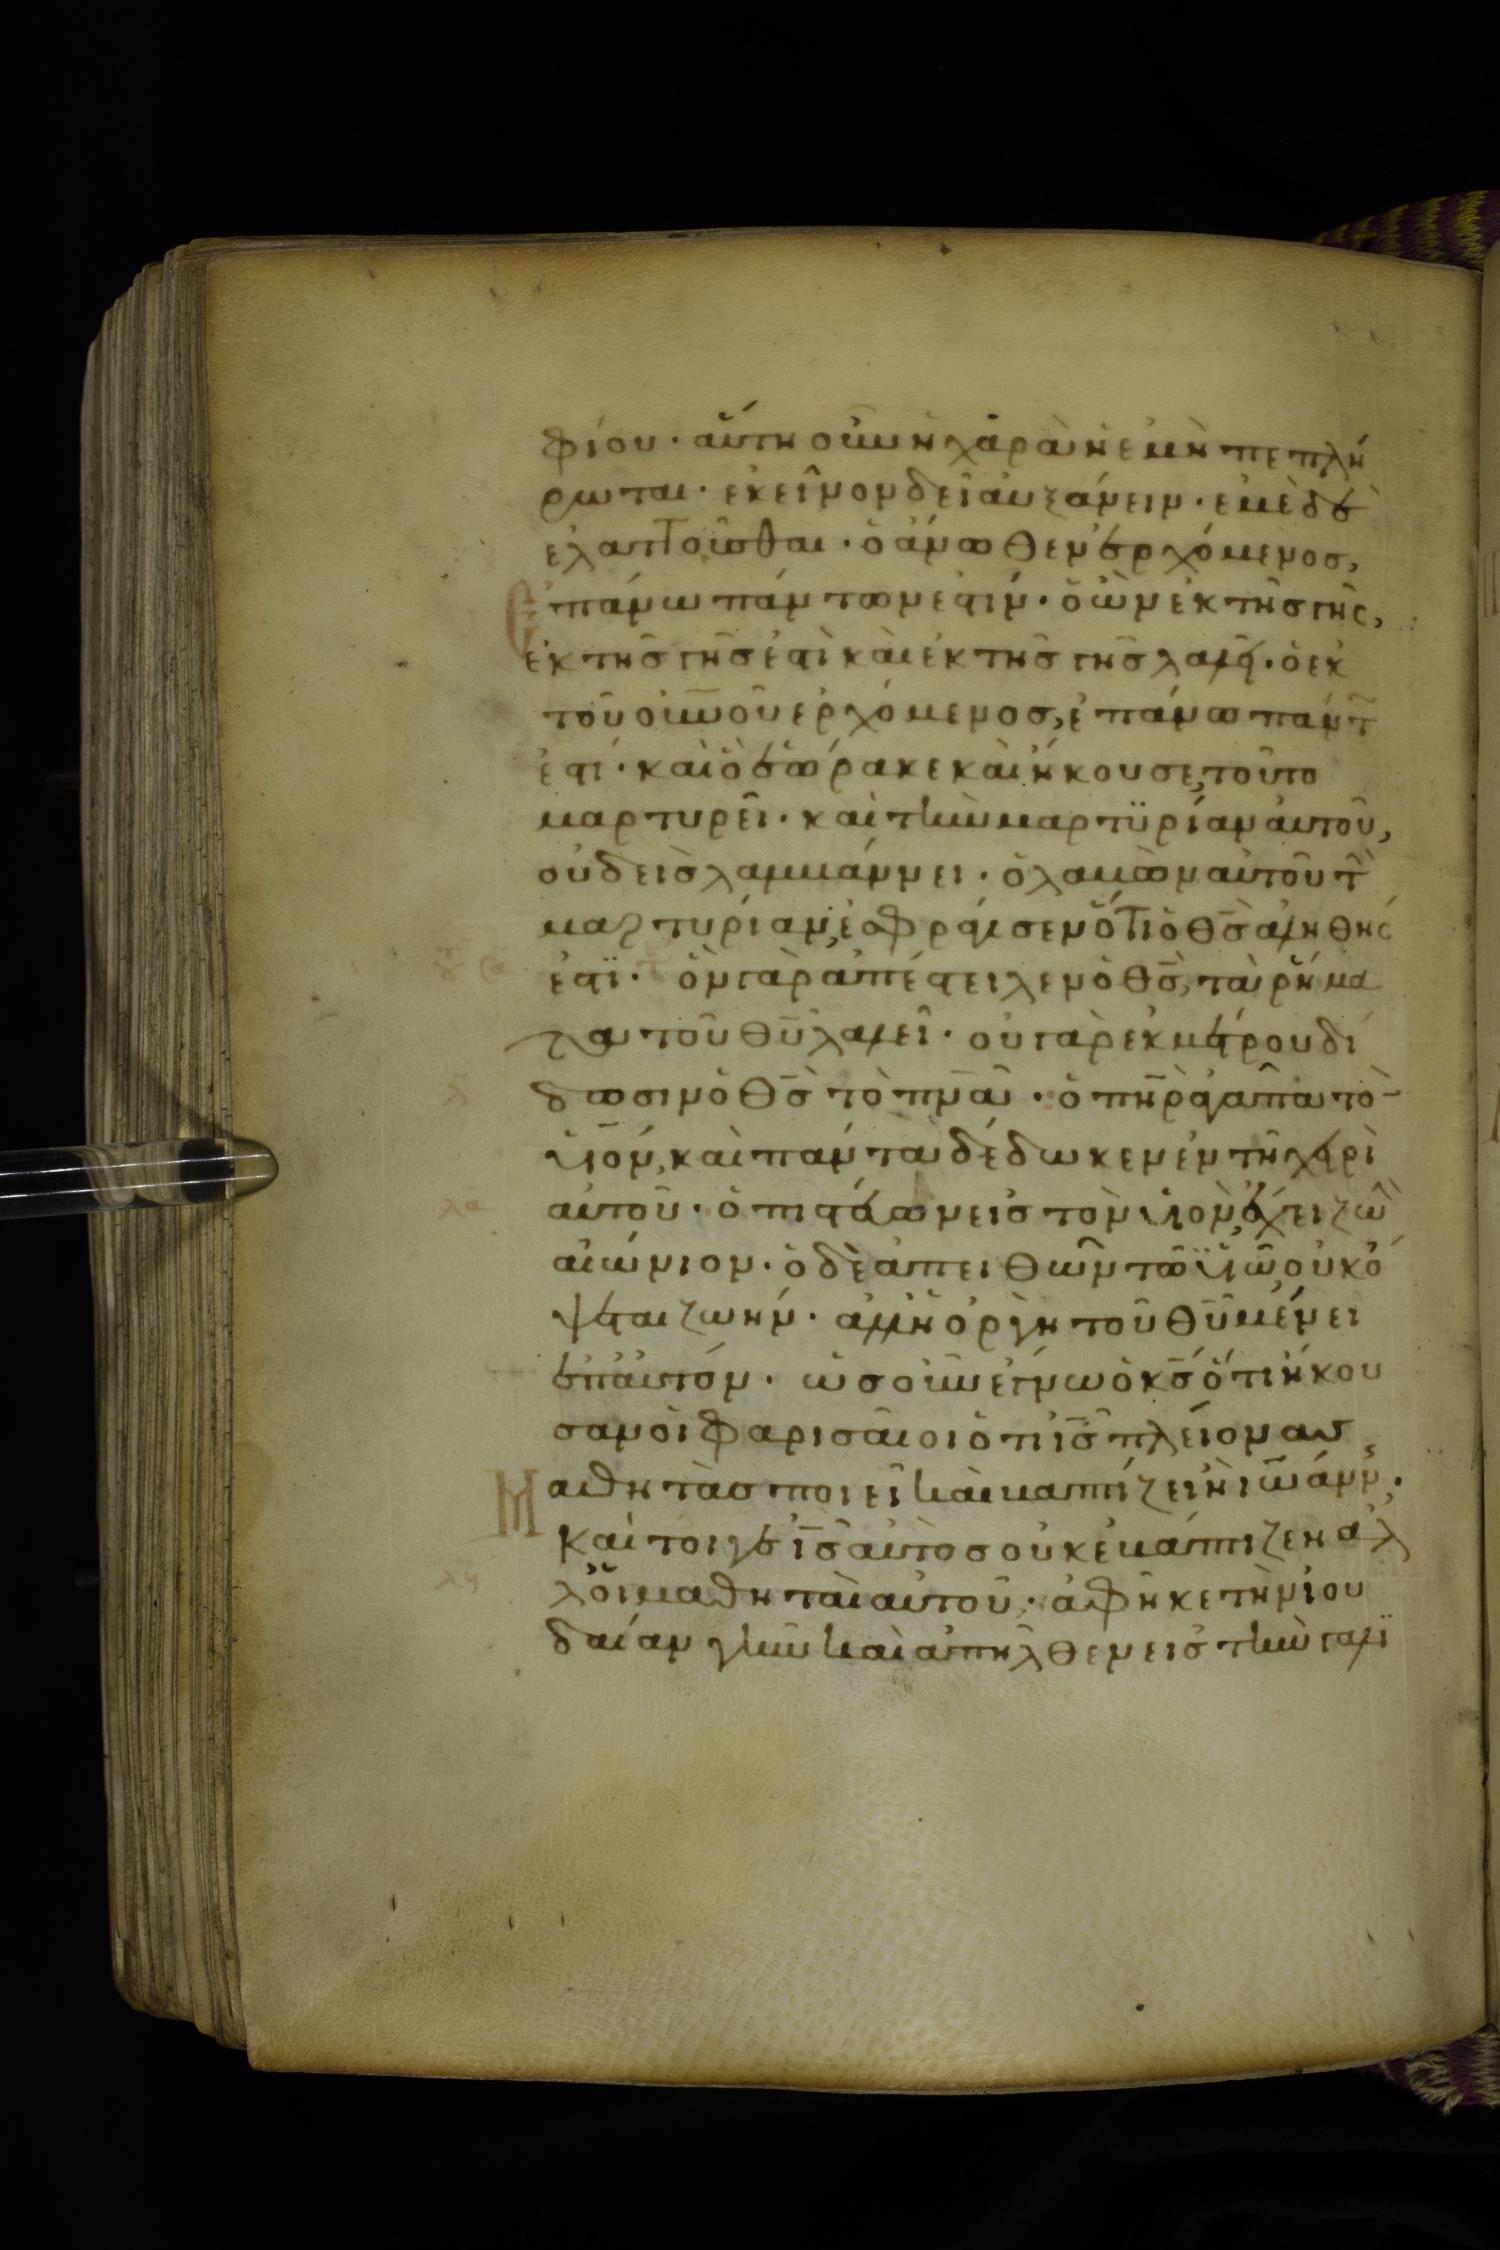 φίου· αὕτη οὖν ἡ χαρὰ ἡ ἐμὴ πεπλή
ρωται· ἐκεῖνον δεῖ αὐξάνειν· ἐμὲ δὲ
ἐλαττοῦσθαι· ὁ ἄνωθεν ἐρχόμενος,
Ἐπάνω πάντων ἐστίν· ὁ ὢν ἐκ τῆς γῆς,
ἐκ τῆς γῆς ἐστὶ καὶ ἐκ τῆς γῆς λαλεῖ· ὁ ἐκ
τοῦ οὐνοῦ ἐρχόμενος, ἐπάνω πάντ
ἐστί· καὶ ὃ ἑώρακε καὶ ἤκουσε, τοῦτο
μαρτυρεῖ· καὶ τὴν μαρτϋρίαν αὐτοῦ,
οὐδεὶς λαμβάννει· ὁ λαβὼν αὐτοῦ τ
μαρτυρίαν, ἐσφράγισεν ὅτι ὁ θς ἀληθής
ἐστϊ· ὃν γὰρ ἀπέστειλεν ὁ θς, τὰ ῥήμα
τα τοῦ θυ λαλεῖ· οὐ γὰρ ἐκ μέτρου δί
δωσιν ὁ θς τὸ πνα· ὁ πηρ ἀγαπᾶ τὸ
υἱόν, καὶ πάντα δέδωκεν ἐν τῇ χειρὶ
αὐτοῦ· ὁ πιστεύων εἰς τὸν υἱὸν ἔχει ζωὴ
αἰώνιον· ὁ δὲ ἀπειθῶν τῷ ϋἱῷ οὐκ ὄ
ψεται ζωήν· ἀλλ ἡ ὀργὴ τοῦ θυ μένει
ἐπ αὐτόν· ὡς οὖν ἔγνω ὁ κς ὅτι ἤκου
σαν οἱ φαρισαῖοι ὅτι ις πλείονας
Μαθητὰς ποιεῖ καὶ βαπτίζει ἢ ιωάνν·
καίτοιγε ις αὐτὸς οὐκ ἐβάπτιζεν ἀλ
λ οἱ μαθηταὶ αὐτοῦ· ἀφῆκε τὴν ἰου
δαίαν γῆν καὶ ἀπῆλθεν εἰς τὴν γαλι